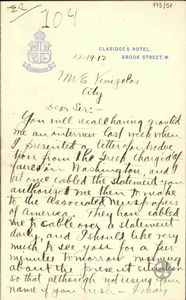 104
173/51
CLARIDGE'S HOTEL,
BROOK STREET, W.
12-19-12
Mr E Venezelos
City
Dear Sir:
You will recall having granted
me an interview last week when
I presented a letter of introduc
tion from the Greek Chargé d'
affaires in Washington, and I
at once cabled the statement you
authorized me then to make
to the Associated newspapers
of America. They have cabled
me to cable over a statement
and I should like very
much to see you for a few
minutes tomorrow morning
about the present situa
tion so that
name if you wish.